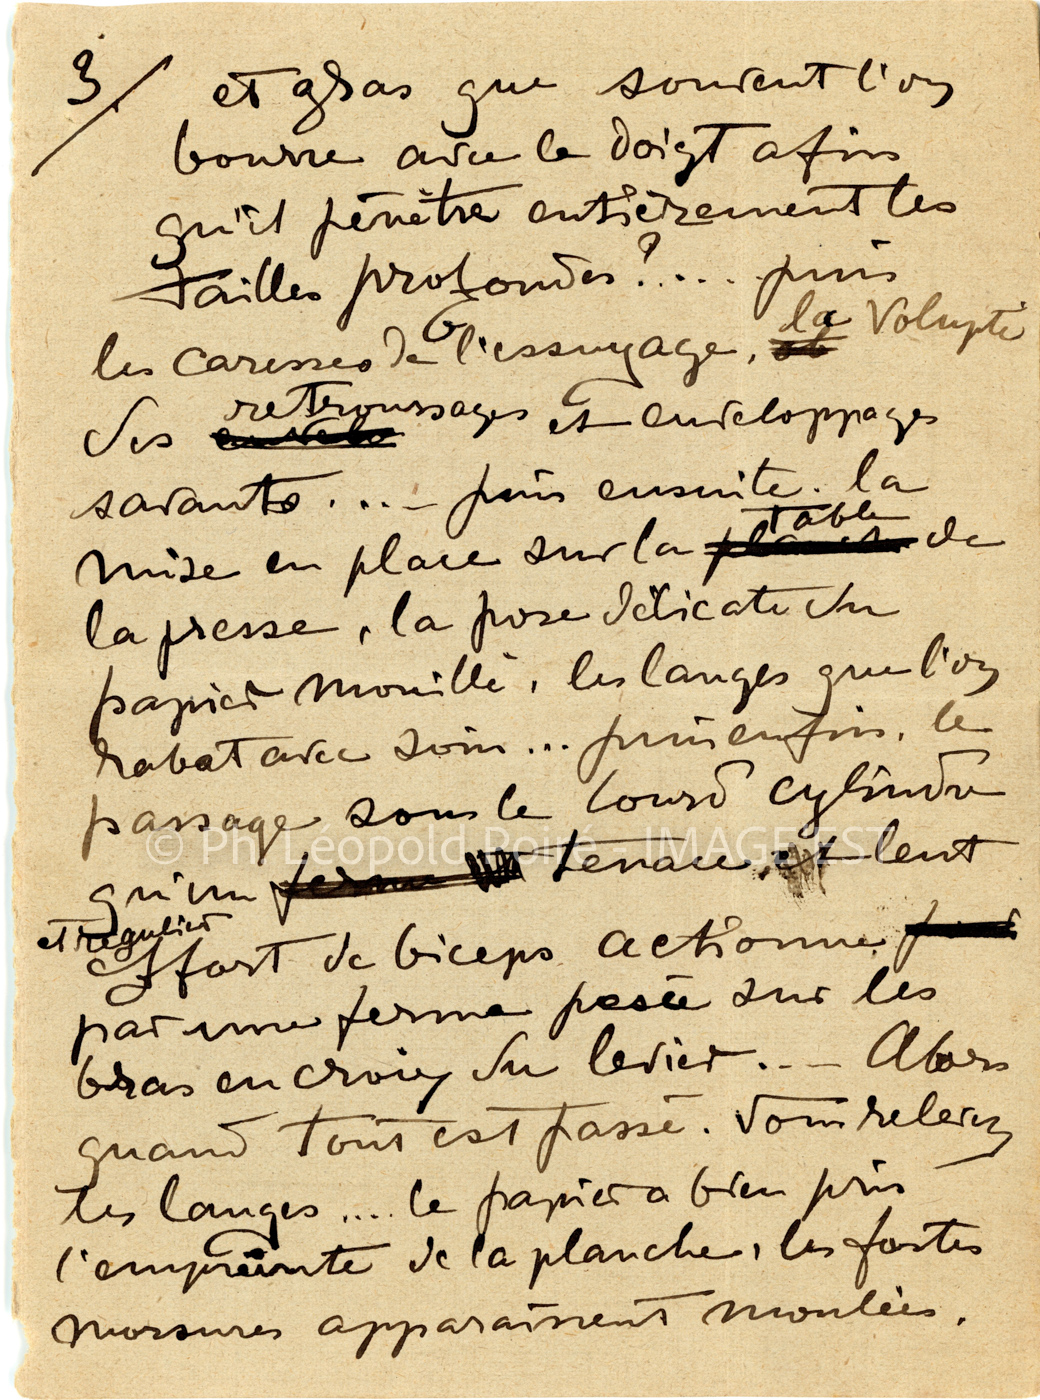 3/ et gras que souvent l'on
bourre avec le doigt afin
qu'il pénètre entièrement les
tailles profondes ?.... puis
les caresses de l'essuyage, la volupté
des retroussages et enveloppages
savants .... puis ensuite. la
mise en place sur la table de
la presse, la pose délicate du
papier mouillé, les langes que l'on
rabat avec soin ... puis enfin, le
passage sous le lourd cylindre
© Ph. Léopold Poiré - IMAGE'EST
qu'un ferme tenace, et lent
et régulier
effort de biceps actionne
par une ferme pesée sur les
bras en croix du levier .... Alors
quand tout est passé. Vous relevez
les langes .... le papier a bien pris
l'empreinte de la planche, les fortes
morsures apparaissent moulées.